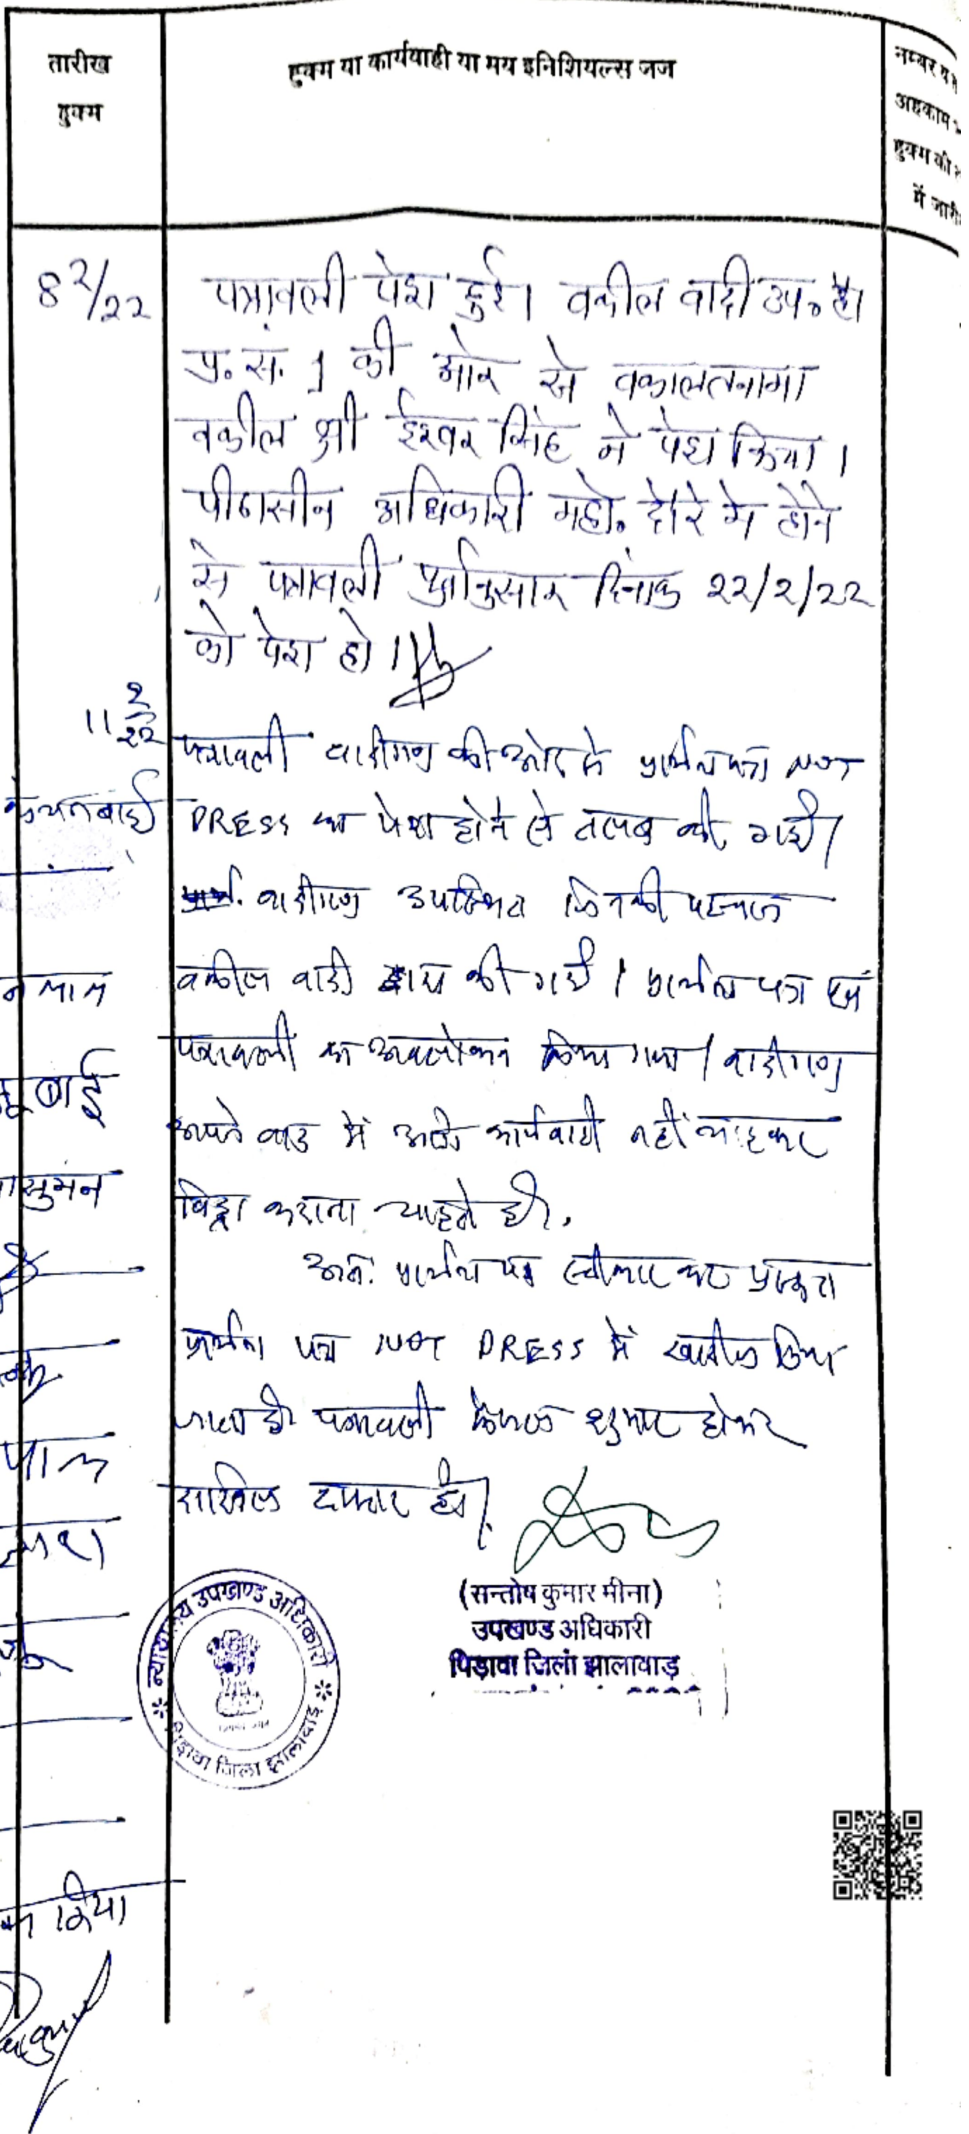 तारीख
हुक्म
हुक्म या कार्यवाही या मय इनिशियल्स जज
नम्बर व
अहकाम
हुक्म की
में जारी
8 2/22
पत्रावली पेश हुई। वकील वादी उप० है।
प्र. सं. 1 की ओर से वकालतनामा
वकील श्री ईश्वर सिंह ने पेश किया।
पीठासीन अधिकारी महो. दौरे मे होने
से पत्रावली पुर्वानुसार दिनांक 22/2/22
को पेश हो।
11 2/22
पत्रावली वादीगण की ओर से प्रार्थना पत्र NOT
PRESS का पेश होने से तलब की गई।
वादीगण उपस्थित जिनकी पहचान
वकील वादी द्वारा की गई। प्रार्थना पत्र एवं
पत्रावली का अवलोकन किया गया। वादीगण
अपने वाद में कार्यवाही नहीं चाहकर
विड्रा कराना चाहते है।
अतः प्रार्थना पत्र स्वीकार कर प्रस्तुत
प्रार्थना पत्र NOT PRESS में खारीज किया
जाता है पत्रावली फैसल शुमार होकर
दाखिल दफ्तर हो।
कंचनबाई
बाई
सुमन
पाल
किया
(सन्तोष कुमार मीना)
उपखण्ड अधिकारी
पिड़ावा जिला झालावाड़
न्यायालय उपखण्ड अधिकारी
पिड़ावा जिला झालावाड़